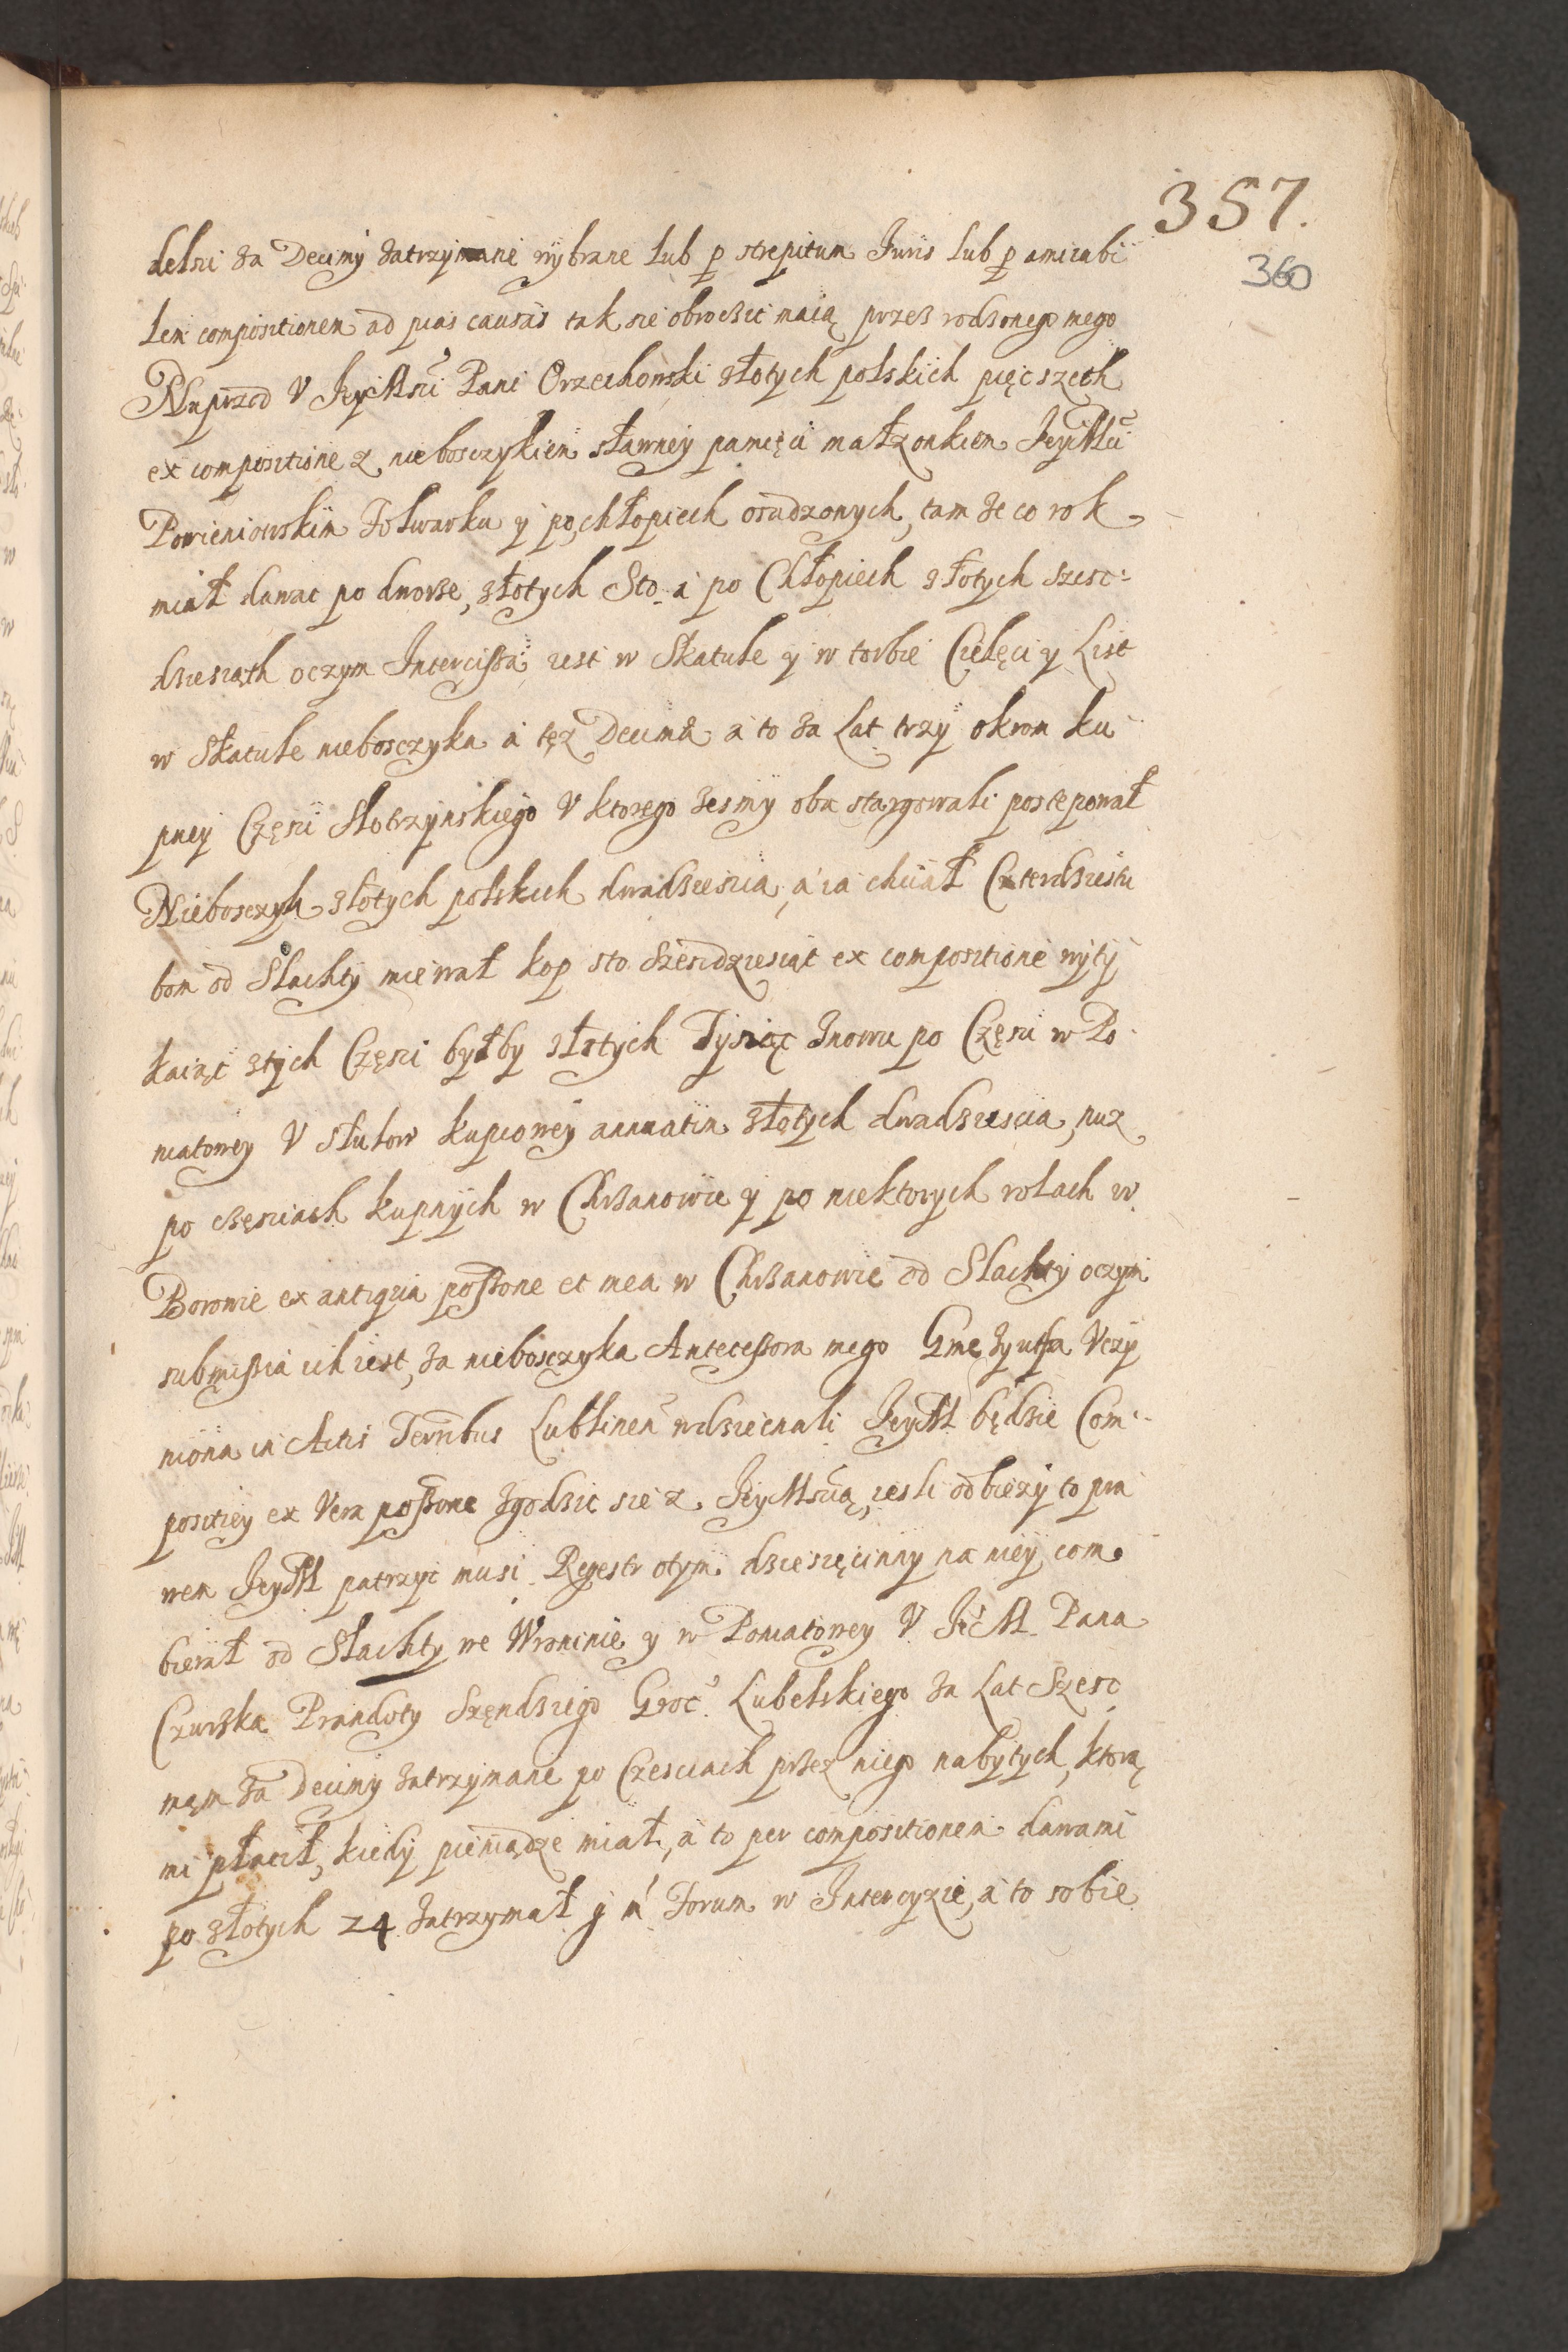 357.
360
delni za Decimy zatrzymane wybrane lub p strepitum Juris lub p amicabi
lem compositionem ad pias causas tak sie obroczic maią przez rodzonego mego
Naprzod V JeyMsci Pani Orzechowski złotych polskich pięcszeth
ex compositione z nieboszczykiem sławney pamięci małzonkiem JeyMci
Powieniowskim Folwarku y po chłopiech osadzonych, tam ze co rok
miał dawac po dworze, złotych Sto a po Chłopiech złotych szesc-
dziesiąth oczym Intercissa iest w Skatule y w torbie Cielęci y List
w Skatule nieboszczyka a tęz Decima a to za Lat trzy okrom ku
pney Częsci Slotrzynskiego V ktorego zesmy oba stargowali postepował
Nieboszczyk złotych polskich dwadziescia, a ia chciał Czterdziestu
bom od Slachty miewał kop sto szescdziesiąt ex compositione wyty
kaiąc ztych Częsci byłby złotych Tysiąc Znowu po Częsci w Po
niatowey V Słutow kupioney annuatim złotych dwadziescia, nuz
po częsciach kupnych w Chrzanowie y po niektorych rolach w
Borowie ex antiqua possone et mea w Chrzanowie od Slachty oczym
submissia ich iest, za nieboszczyka Antecessora mego Vczy
niona in Actis Terribus Lublinen wdzięcznali JeyM będzie Com-
positiey ex Vera possone zgodzic sie z JeyMscią, iesli odbiezy to pra
wem JeyM patrzyc musi Regestr otym dziesięcinny na niey com
bierał od Slachty we Wroninie y w Poniatowey V JeM Pana
Czurzka Prandoty Szęndziego Groc Lubelskiego za Lat Szesc
mąm za Decimy zatrzymane po Czesciach przez niego nabytych, ktorą
mi płacił, kiedy pieniądze miał, a to per compositionem dawami
po złotych 24 zatrzymał y Forum w Intercyzie, a to sobie